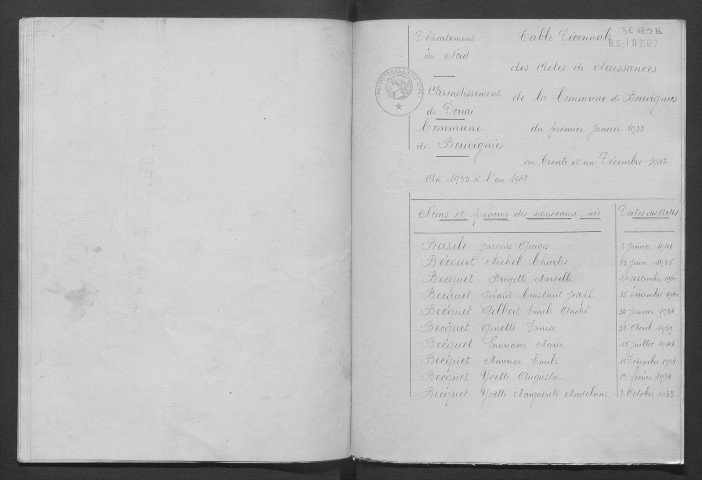 3E 18916
Département
du Nord
Arrondissement
de Douai
Commune
de Bouvignies
Table Décennale
des Actes de Naissances
de la Commune de Bouvignies
du premier Janvier 1933
au Trente et un Décembre 1942
An 1933 à l'an 1942
Noms et prénoms des nouveaux nés
Dates des Actes
Basile Jacques
Janvier
Bécourt Michel Charles
Juin 1935
Becquet Brigitte Marcelle
septembre
Becquet Gérard Constant Joseph
25 décembre
Becquet Gilbert Emile André
Janvier
Becquet Ginette Louise
Avril
Becquet Marie
15 Juillet
Becquet Maurice Emile
Décembre 1934
Becquet Yvette Augusta
février 1934
Becquet Yvette Marguerite Madeleine
Octobre 1933